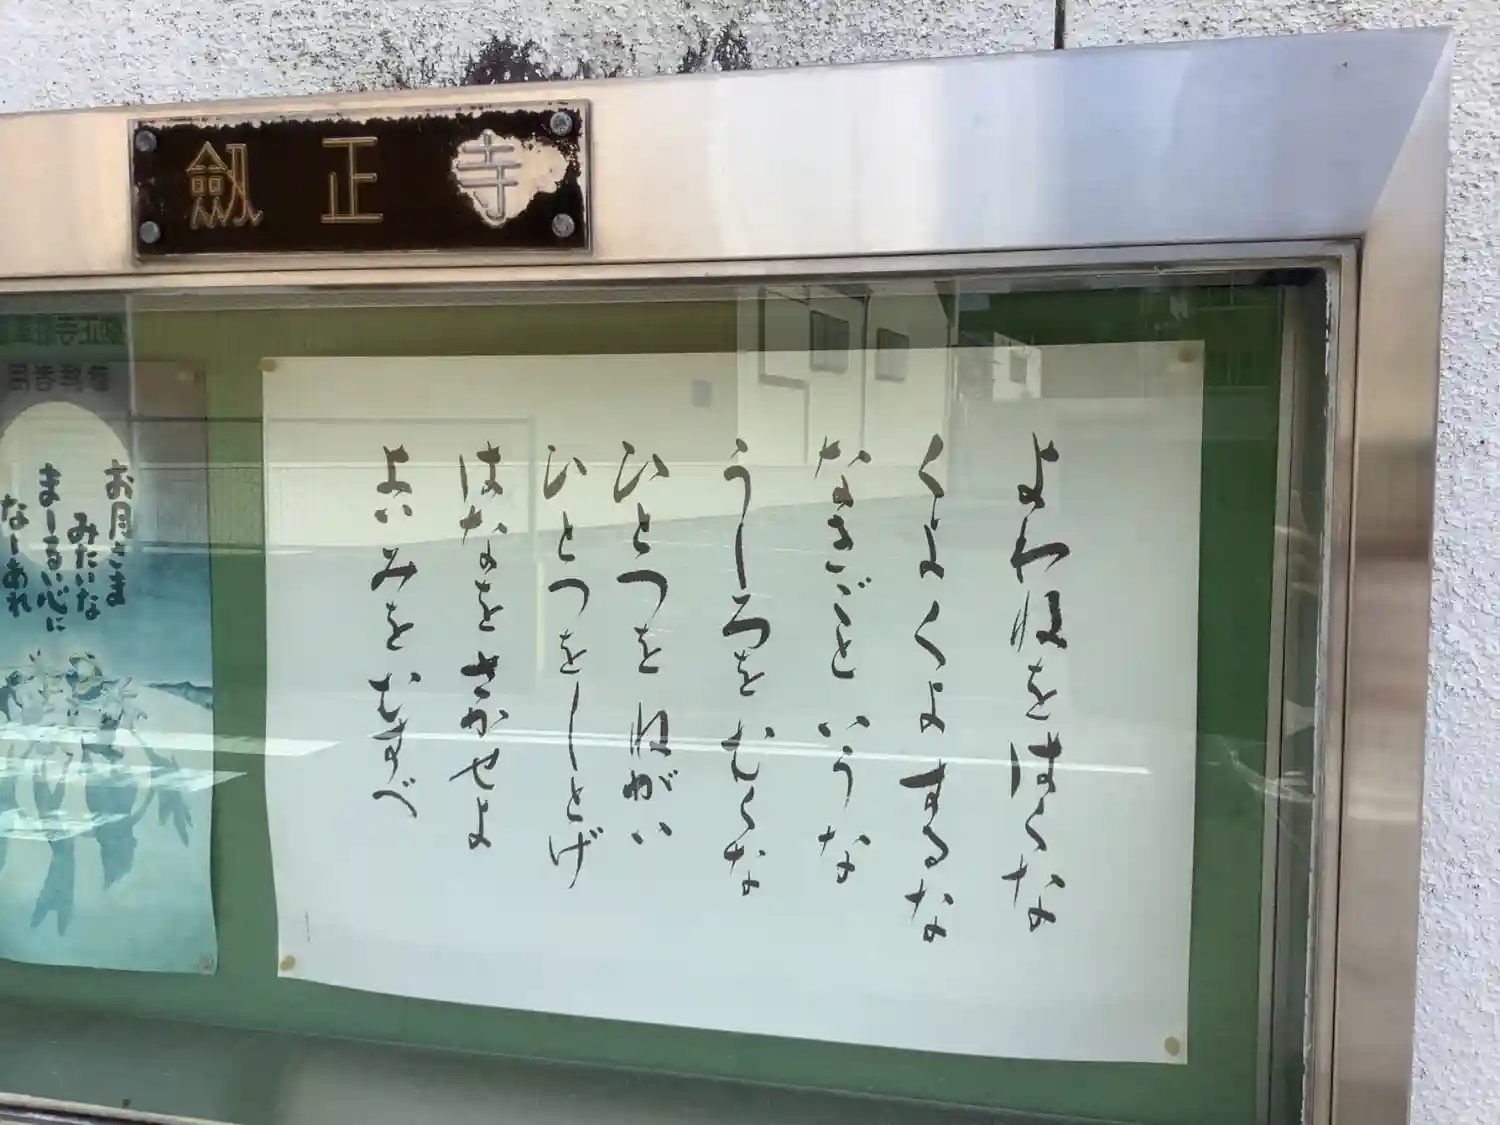 劔正寺
よわねをはくな
くよくよするな
なきごというな
うしろをむくな
ひとつをねがい
ひとつをしとげ
はなをさかせよ
よいみをむすべ
お月さま
みたいな
まーるい心に
なーあれ